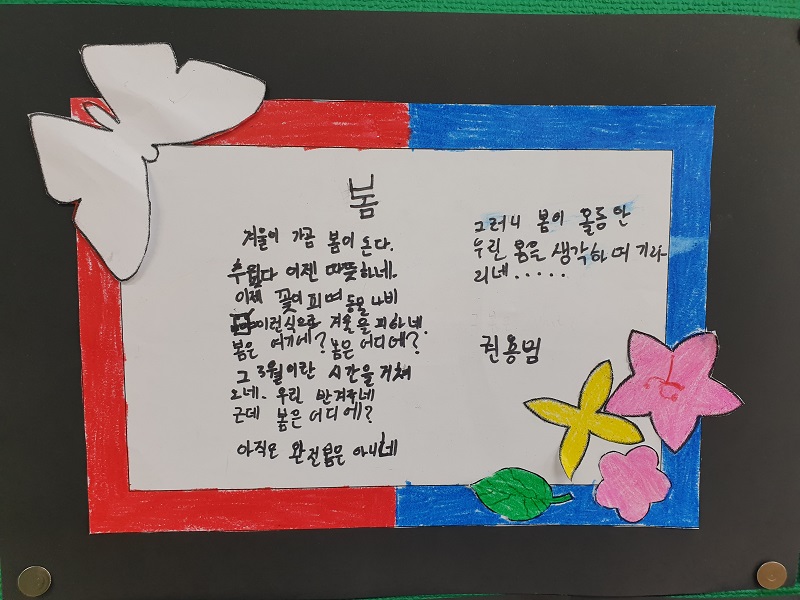 봄
겨울이 가곰 봄이 온다.
추웠다 이젠 따뜻하네.
이제 꽃이 피며 동물 나비
이런식으로 겨울을 피하네.
봄은 여기에? 봄은 어디에?
그 3월이란 시간을 거쳐
오네. 우린 반겨주네
근데 봄은 어디에?
아직도 완전봄은 아니네
그러니 봄이 올동안
우린 봄을 생각하며 기다
리네.....
권용범